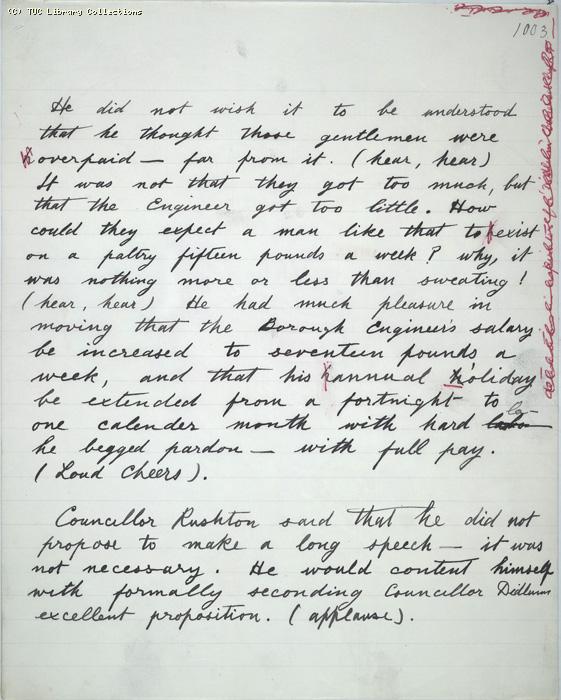 (C) TUC Library Collections
1003
He did not wish it to be understood
that he thought those gentlemen were
overpaid — far from it. (hear, hear)
It was not that they got too much, but
that the Engineer got too little. How
could they expect a man like that to exist
on a paltry fifteen pounds a week? why, it
was nothing more or less than sweating!
(hear, hear) He had much pleasure in
moving that the Borough Engineer's salary
be increased to seventeen pounds a
week, and that his annual holiday
be extended from a fortnight to
one calender month with hard la-
he begged pardon — with full pay.
(Loud Cheers).
Councillor Rushton said that he did not
propose to make a long speech — it was
not necessary. He would content himself
with formally seconding Councillor Didlums
excellent proposition. (applause).